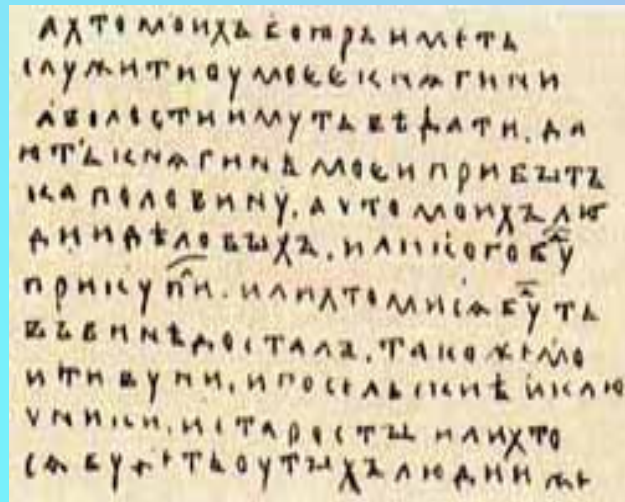 АХТОМОИХЪ БОꙖРЪ ИМЕТЬ
СЛУЖИТИОУМОЕЄКНѦГИНИ
АВОЛОСТИИМУТЬВѢДАТИ. ДА
ЮТЬКНѦГИНѢМОЕИПРИБЫТЪ
КАПОЛОВИНУ. АЧТОМОИХЪЛЮ
ДИИДѢЛОВЫХЪ. ИЛИКОГОБУⷣ
ПРИКУПИⷧ. ИЛИХТОМИСѦБУⷣТЬ
ВЪВИНѢДОСТАЛЪ. ТАКОЖЕМО
ИТИВУНИ. ИПОСЕЛЬСКИѢ ИКЛЮ
ЧНИКИ. ИСТАРОСТЫ ИЛИХТО
СѦБУДЕТЬОУТЫХЪЛЮДИИ ЖЕ